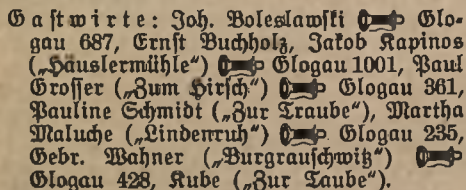 Gastwirte: Joh. Boleslawski Glo-
gau 687, Ernst Buchholz, Jakob Kapinos
(„Häuslermühle“) Glogau 1001, Paul
Grosser („Zum Hirsch“) Glogau 361,
Pauline Schmidt („Zur Traube“), Martha
Maluche („Lindenruh“) Glogau 235,
Gebr. Wahner („Burgrauschwitz“)
Glogau 428, Kube („Zur Taube“).